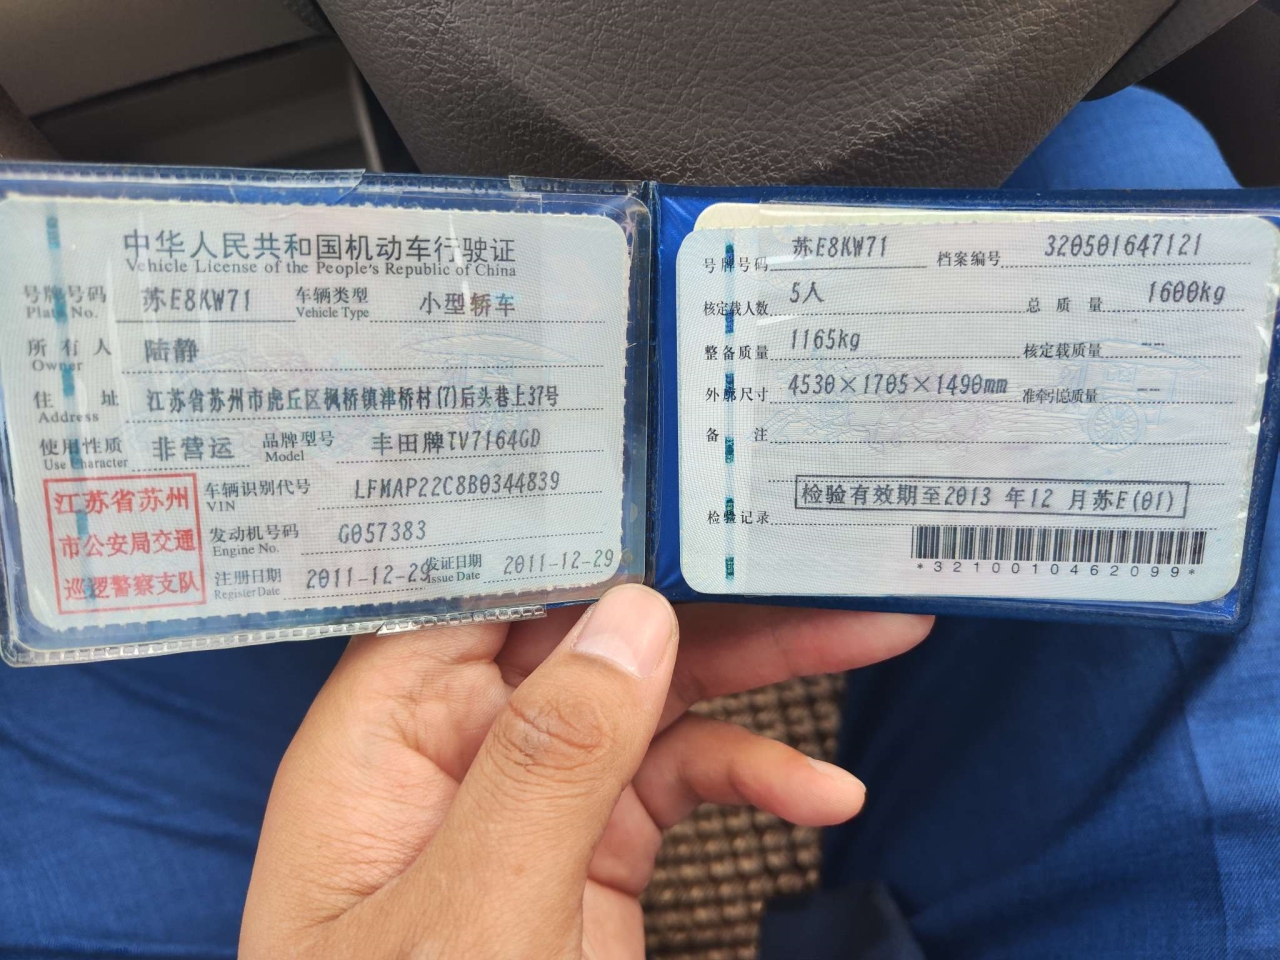 中华人民共和国机动车行驶证
Vehicle License of the People's Republic of China
号牌号码 苏E8KW71 车辆类型 小型轿车
Plate No. Vehicle Type
所有人 陆静
Owner
住址 江苏省苏州市虎丘区枫桥镇津桥村(7)后头巷上37号
Address
使用性质 非营运 品牌型号 丰田牌TV7164GD
Use Character Model
江苏省苏州
市公安局交通
巡逻警察支队
车辆识别代号 LFMAP22C8B0344839
VIN
发动机号码 G057383
Engine No.
注册日期 2011-12-29 发证日期 2011-12-29
Register Date Issue Date
号牌号码 苏E8KW71 档案编号 320501647121
核定载人数 5人 总质量 1600kg
整备质量 1165kg 核定载质量 --
外廓尺寸 4530×1705×1490mm 准牵引总质量 --
备注
检验有效期至2013 年12 月苏E(01)
检验记录
*3210010462099*